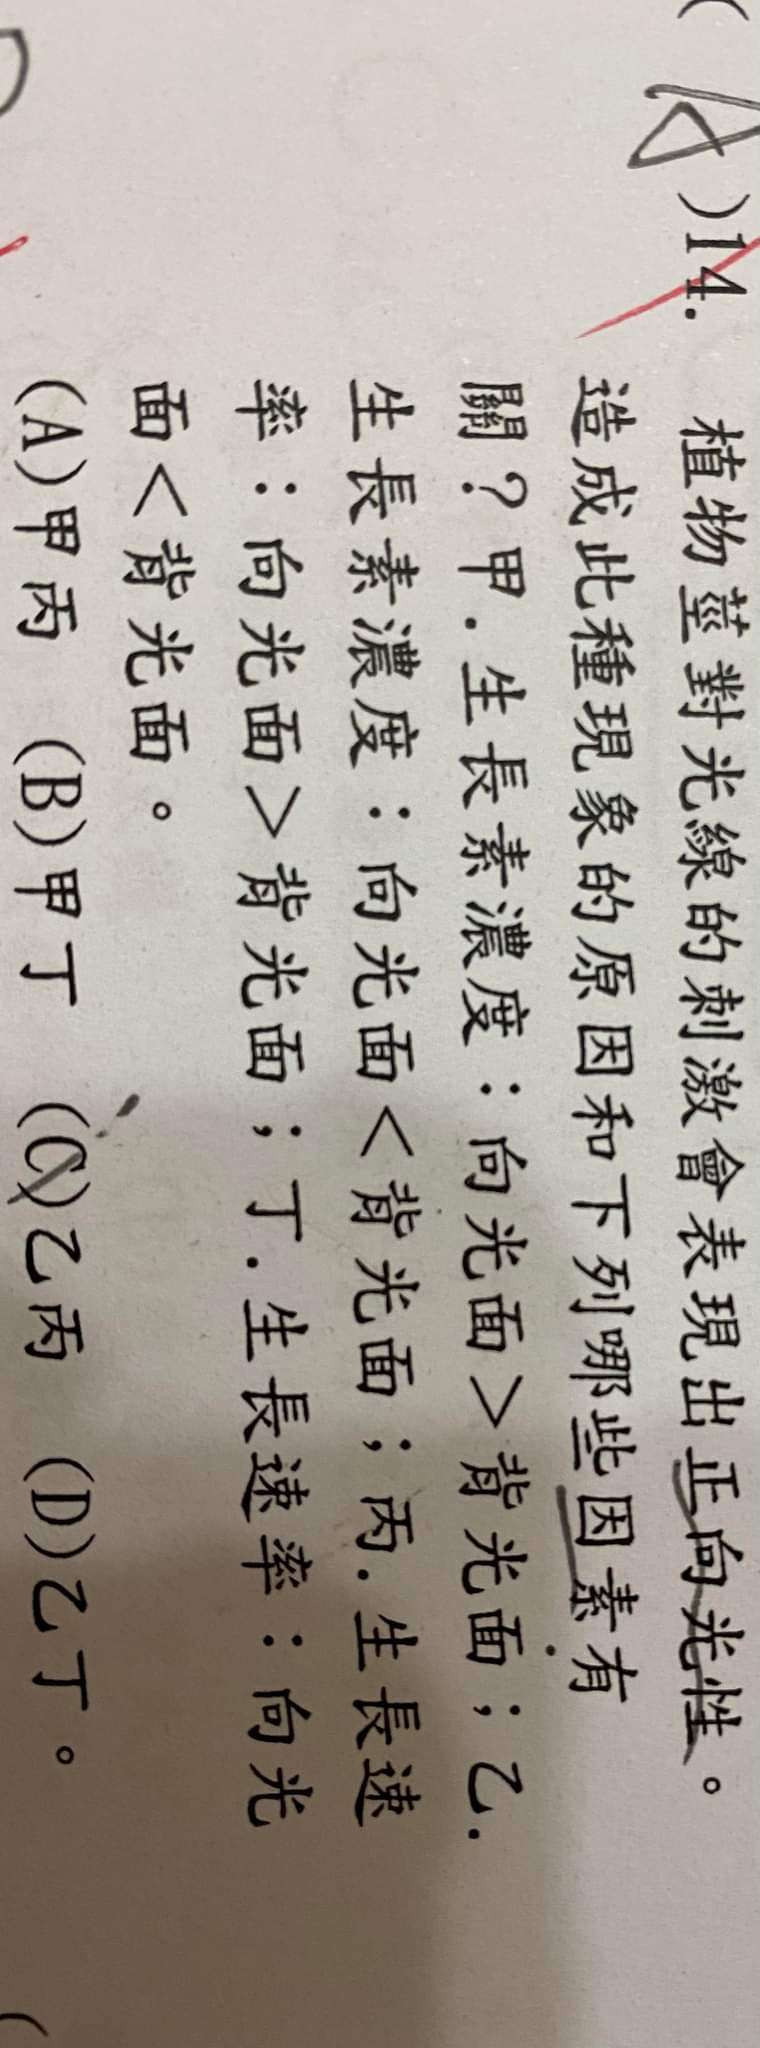 ( )14. 植物莖對光線的刺激會表現出正向光性。
造成此種現象的原因和下列哪些因素有
關？甲.生長素濃度：向光面＞背光面；乙.
生長素濃度：向光面＜背光面；丙.生長速
率：向光面＞背光面；丁.生長速率：向光
面＜背光面。
(A)甲丙 (B)甲丁 (C)乙丙 (D)乙丁。